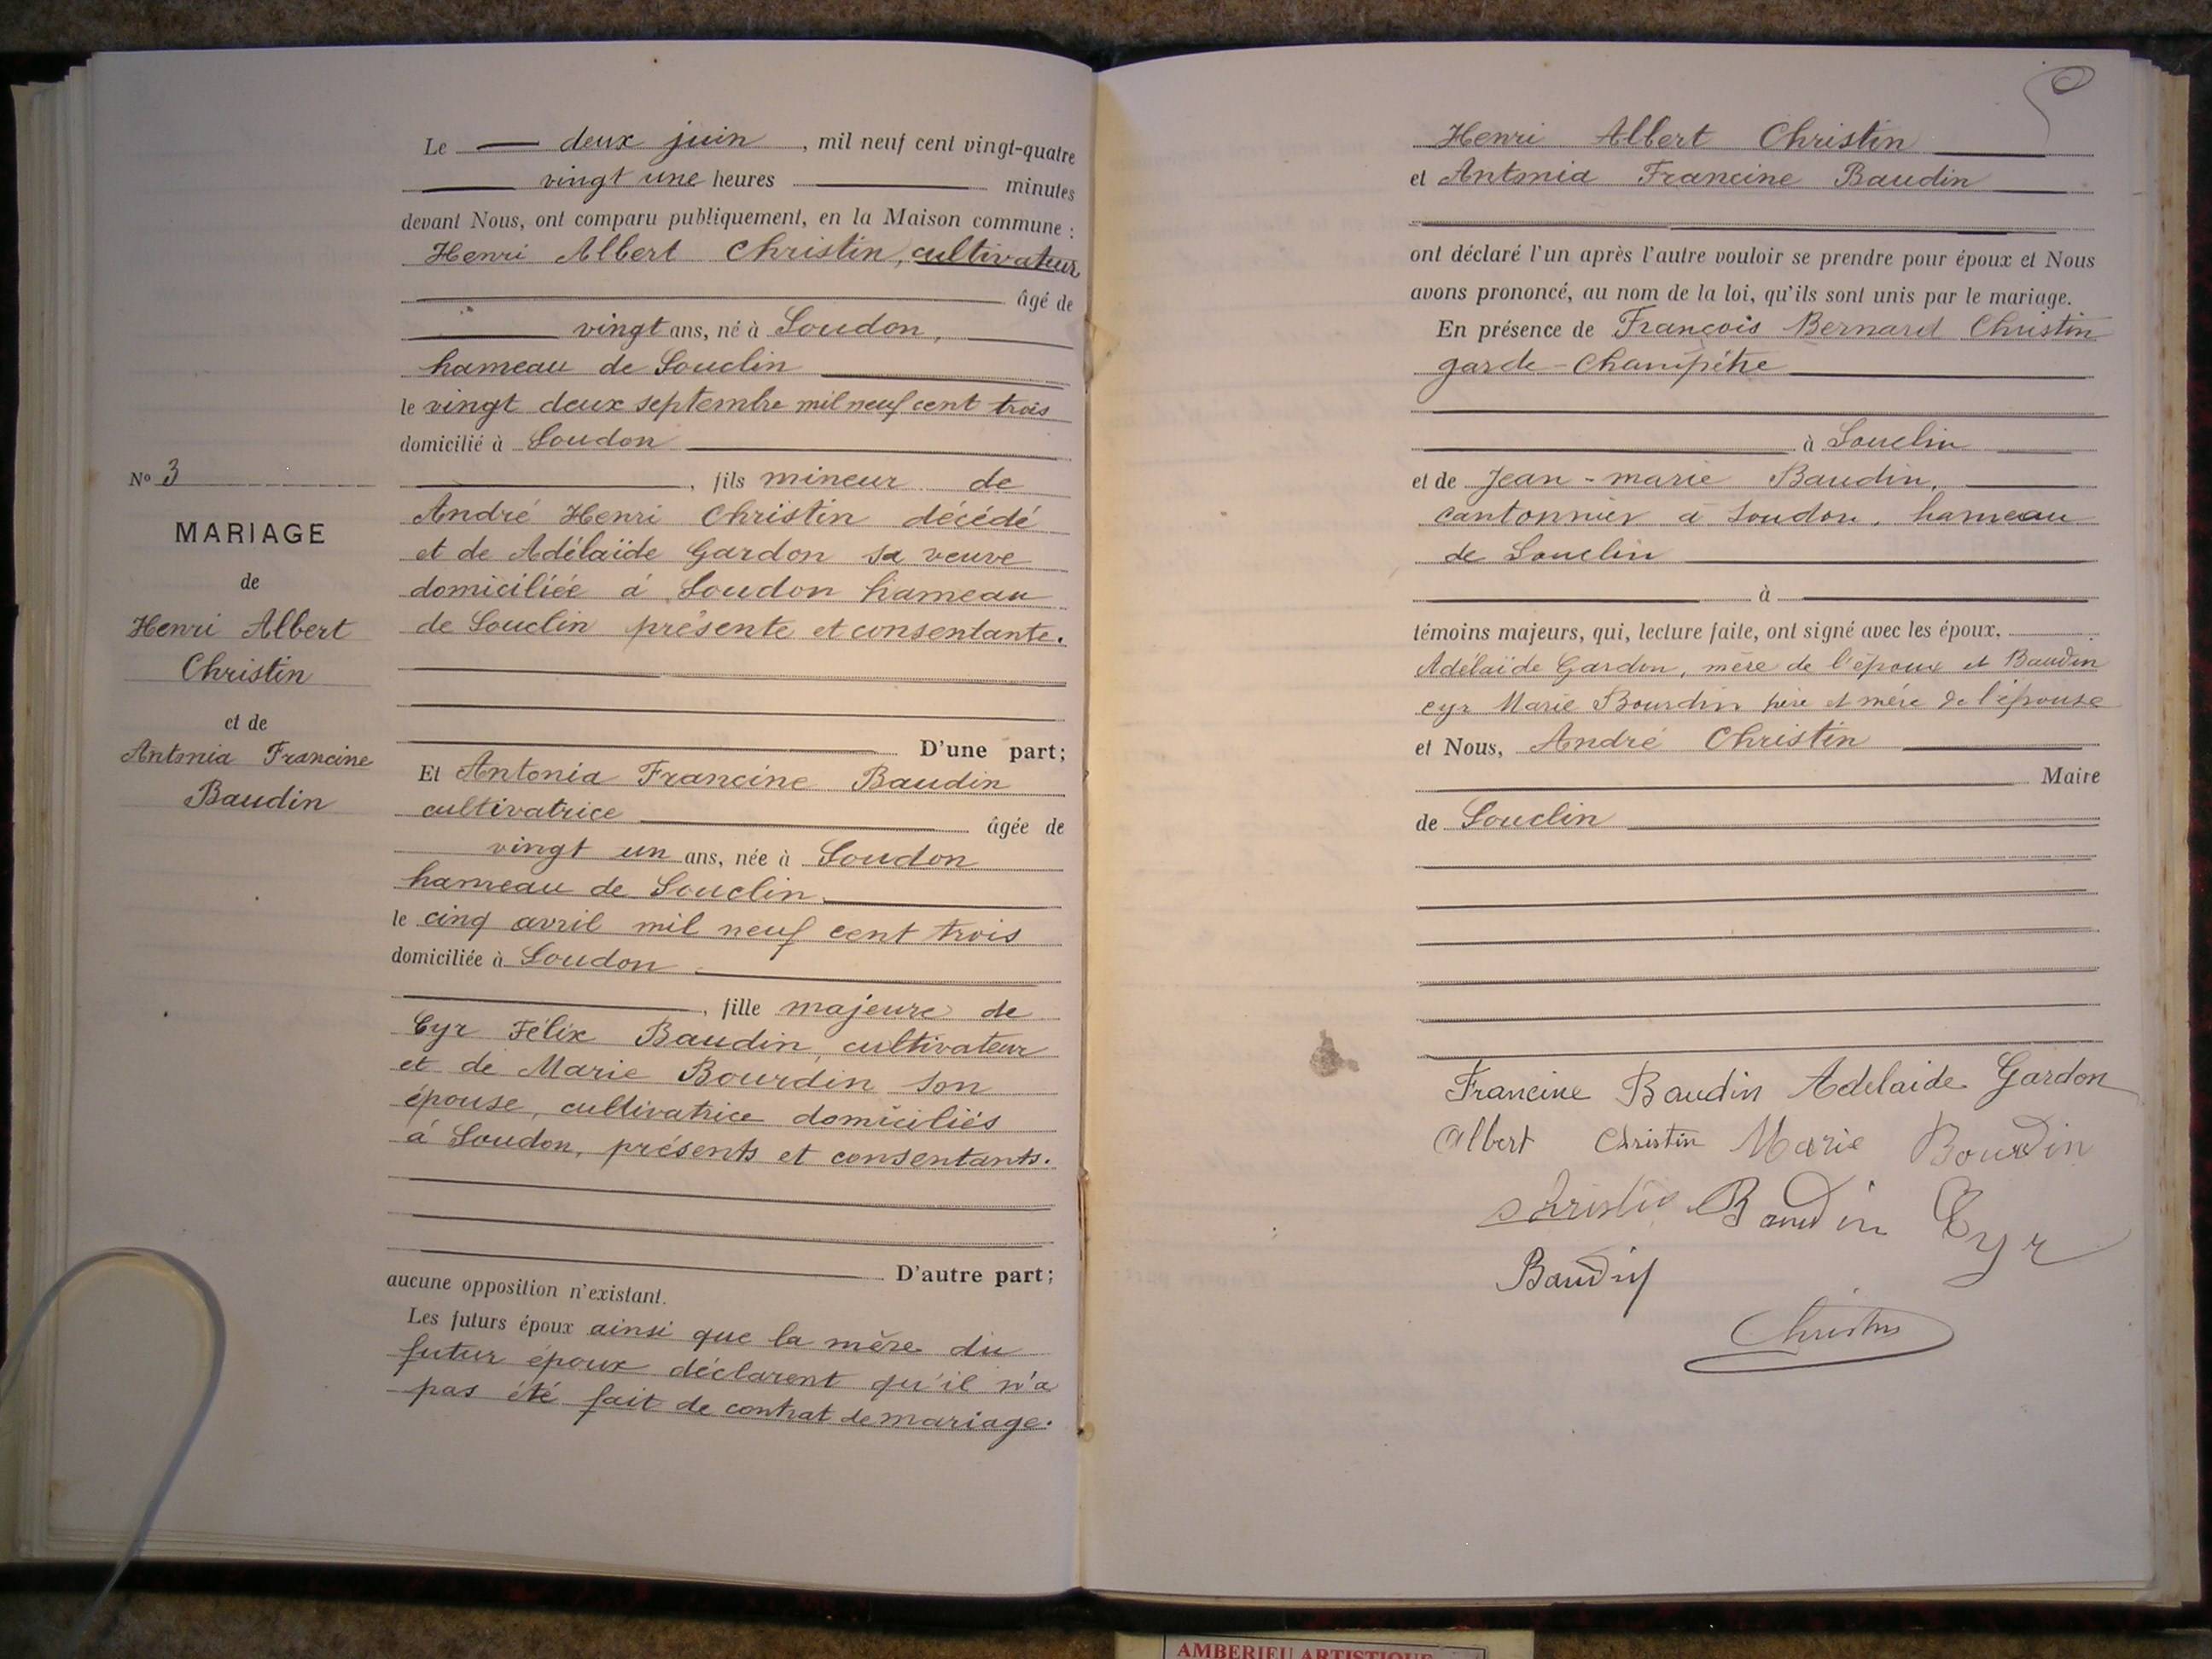 Nº 3
MARIAGE
de
Henri Albert
Christin
et de
Antonia Francine
Baudin
Le deux juin, mil neuf cent vingt-quatre
vingt une heures minutes
devant Nous, ont comparu publiquement, en la Maison commune :
Henri Albert Christin, cultivateur
âgé de
vingt ans, né à Soudon,
hameau de Souclin
le vingt deux septembre mil neuf cent trois
domicilié à Soudon
, fils mineur de
André Henri Christin décédé
et de Adélaïde Gardon sa veuve
domiciliée à Soudon hameau
de Souclin présente et consentante.
D'une part;
Et Antonia Francine Baudin
cultivatrice âgée de
vingt un ans, née à Soudon
hameau de Souclin
le cinq avril mil neuf cent trois
domiciliée à Soudon
, fille majeure de
Cyr Félix Baudin, cultivateur
et de Marie Bourdin son
épouse, cultivatrice domiciliés
à Soudon, présents et consentants.
D'autre part;
aucune opposition n'existant.
Les futurs époux ainsi que la mère du
futur époux déclarent qu'il n'a
pas été fait de contrat de mariage.
Henri Albert Christin
et Antonia Francine Baudin
ont déclaré l'un après l'autre vouloir se prendre pour époux et Nous
avons prononcé, au nom de la loi, qu'ils sont unis par le mariage.
En présence de François Bernard Christin
garde-Champêtre
à Souclin
et de Jean-marie Baudin,
cantonnier à Soudon, hameau
de Souclin
à
témoins majeurs, qui, lecture faite, ont signé avec les époux,
Adélaïde Gardon, mère de l'époux et Baudin
Cyr Marie Bourdin père et mère de l'épouse
et Nous, André Christin
Maire
de Souclin
Francine Baudin Adelaide Gardon
Albert Christin Marie Bourdin
Christin Baudin Cyr
Baudin
Christin
AMBERIEU ARTISTIQUE